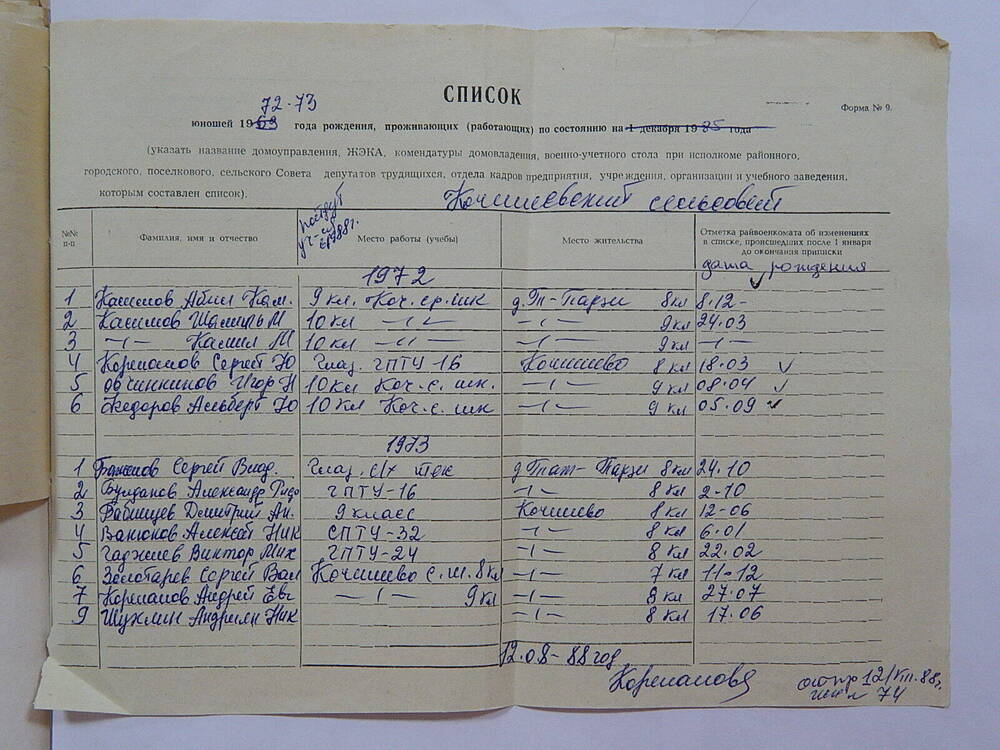 СПИСОК
Форма № 9.
72-73
юношей 1969 года рождения, проживающих (работающих) по состоянию на 1 декабря 1985 года
(указать название домоуправления, ЖЭКА, комендатуры домовладения, военно-учетного стола при исполкоме районного,
городского, поселкового, сельского Совета депутатов трудящихся, отдела кадров предприятия, учреждения, организации и учебного заведения,
которым составлен список). Кочишевский сельсовет
№№ п-п Фамилия, имя и отчество Место работы (учебы) Место жительства Отметка райвоенкомата об изменениях в списке, происшедших после 1 января до окончания приписки
дата рождения
1972
1 Касимов Кам. 9 кл. Коч. ср. шк д. Т-Парзи 8кл 8.12-
2 Касимов Шамиль М 10 кл -〃- -〃- 9кл 24.03
3 -〃- Камил М 10 кл -〃- -〃- 9кл -〃-
4 Корепанов Сергей Ю Глаз. ГПТУ-16 Кочишево 8 кл 18.03 ✓
5 Овчинников Игор Н 10 кл Коч. с. шк. -〃- 9 кл 08.04 ✓
6 Федоров Альберт Ю 10 кл Коч. с. шк -〃- 9 кл 05.09 ✓
1973
1 Сергей Влад. Глаз. с/х тех д Тат-Парзи 8кл 24.10
2 Булданов Александр ГПТУ-16 -〃- 8 кл 2-10
3 Дмитрий Ан. 9 класс Кочишево 8 кл 12-06
4 Ванюков Алексей Ник СПТУ-32 -〃- 8 кл 6.01
5 Гаджиев Виктор Мих ГПТУ-24 -〃- 8 кл 22.02
6 Золотарев Сергей Вал Кочишево с. ш. 8 кл -〃- 7 кл 11-12
7 Корепанов Андрей Евг -〃- 9 кл -〃- 8 кл 27.07
9 Шуклин Андриян Ник -〃- 8 кл 17.06
12.08-88 год
Корепанова
12/VIII.88г.
74